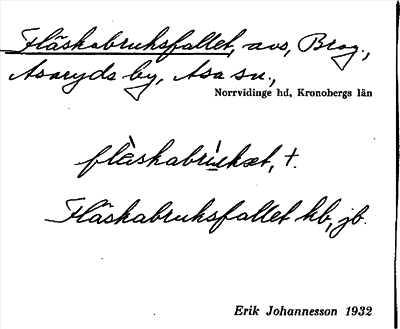 Fläskabruksfallet, avs, Brog.,
Asaryds by, Asa sn.,
Norrvidinge hd, Kronobergs län
flàskabrùskæt, †.
Fläskabruksfallet hb, jb.
Erik Johannesson 1932